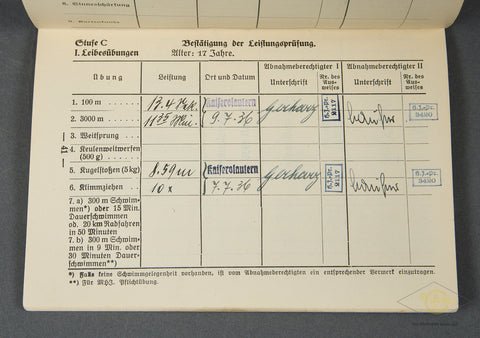 a. Sinnesschärfung
Stufe C
Bestätigung der Leistungsprüfung.
I. Leibesübungen
Alter: 17 Jahre.
Übung
Leistung
Ort und Datum
Abnahmeberechtigter I
Unterschrift
Nr. des Ausweises
Abnahmeberechtigter II
Unterschrift
Nr. des Ausweises
1. 100 m
13.4 Sek.
Kaiserslautern
2. 3000 m
9.7.36
3. Weitsprung
4. Keulenweitwerfen
(500 g)
5. Kugelstoßen (5 kg)
8.59 m
Kaiserslautern
6. Klimmziehen
10 x
7.7.36
7. a) 300 m Schwim-
men*) oder 15 Min.
Dauerschwimmen
od. 20 km Radfahren
in 50 Minuten
7. b) 300 m Schwim-
men in 9 Min. oder
30 Minuten Dauer-
schwimmen**)
*) Falls keine Schwimmgelegenheit vorhanden, ist vom Abnahmeberechtigten ein entsprechender Vermerk einzutragen.
**) Für MHJ. Pflichtübung.
— 41 —